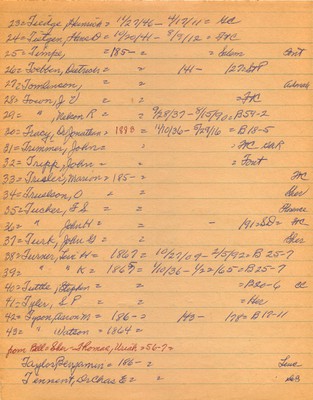 23= Tietge, Heinrich = 10/27/46 - 4/17/11 = HC
24= Tietgen, Hans D = 10/20/41 - 5/9/12 = FHC
25= Timpe, = 185- = = Salem Cont
26= Tobben, Dietrich = = 141 - 127=SP
27= Tomlinson, = =
28= Town, J V = = = FHC
29= " Nelson R = = 9/28/37 - 6/15/90 = B58-2
30= Tracy, Dr Jonathan = 1880 = 1/10/36 - 9/29/16 = B 18-5
31= Trimmer, John = = = HC
32= Tripp, John = = = Font
33= Trisler, Marion = 185- = = FC
34= Truelson, O = = Sher
35= Tucker, E S = =
36= " John H = = - 191=SD = HC
37= Turk, John G = = Sher
38= Turner, Levi H = 1867 = 10/27/09 - 2/5/92 = B 25-7
39= " " K = 1865 = 1/10/36 - 1/22/65 = B 25-7
40= Tuttle, Stephen = = = B20-6 CC
41= Tyler, S P = = = Her
42= Tyson, Aaron M = 186- = 143 - 178= B 18-11
43= " Watson = 1864 = =
from Bill = Sher - Thomas, Uriah = 56-7 =
Taylor, Benjamin = 186- =
Tennent, Dr Chas E = =